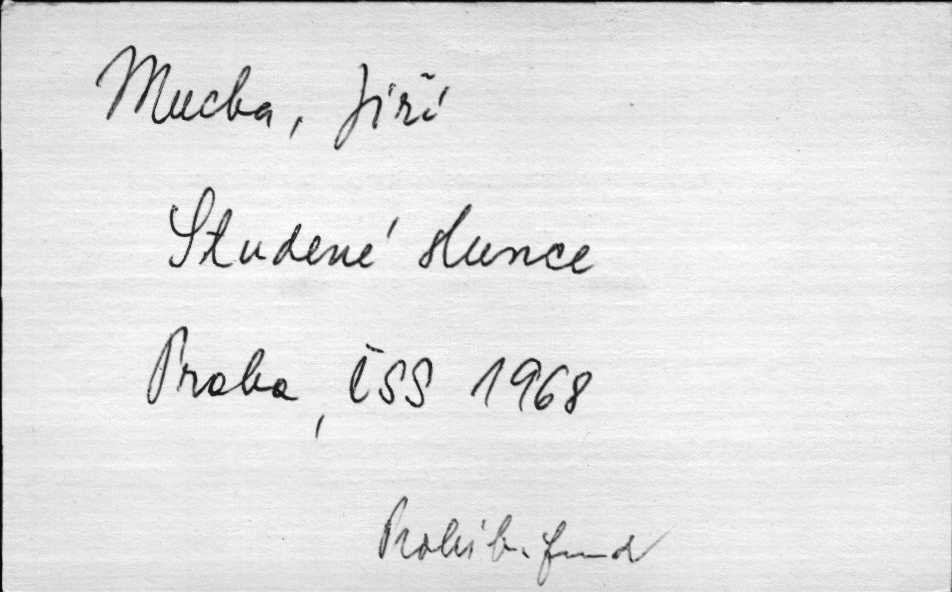 Mucha, Jiří
Studené slunce
Praha, ČSS 1968
Prohib. fond